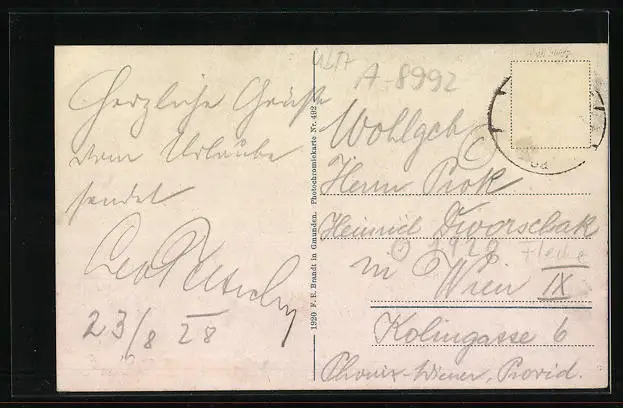 Herzliche Grüße
vom Urlaube
sendet
23/8 28
1920 F. E. Brandt in Gmunden. Photochromiekarte Nr. 492
A-8992
Wohlgeb
Herrn Prok.
Heinrich Dworschak
in Wien IX
1928
Kolingasse 6
Phönix-Wiener, Provid.